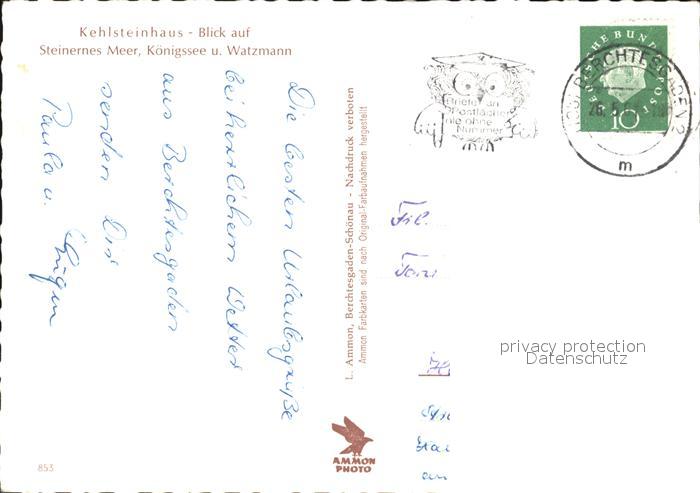 Kehlsteinhaus - Blick auf
Steinernes Meer, Königssee u. Watzmann
Die besten Urlaubsgrüße
bei herrlichem Wetter
aus Berchtesgaden
senden Dir
Paula u. Jürgen
L. Ammon, Berchtesgaden-Schönau - Nachdruck verboten
Ammon Farbkarten sind nach Original-Farbaufnahmen hergestellt
853
AMMON
PHOTO
Briefe an
Postfächer
nie ohne
Nummer
DEUTSCHE BUNDESPOST
10
BERCHTESGADEN 2
m
Frl.
privacy protection
Datenschutz